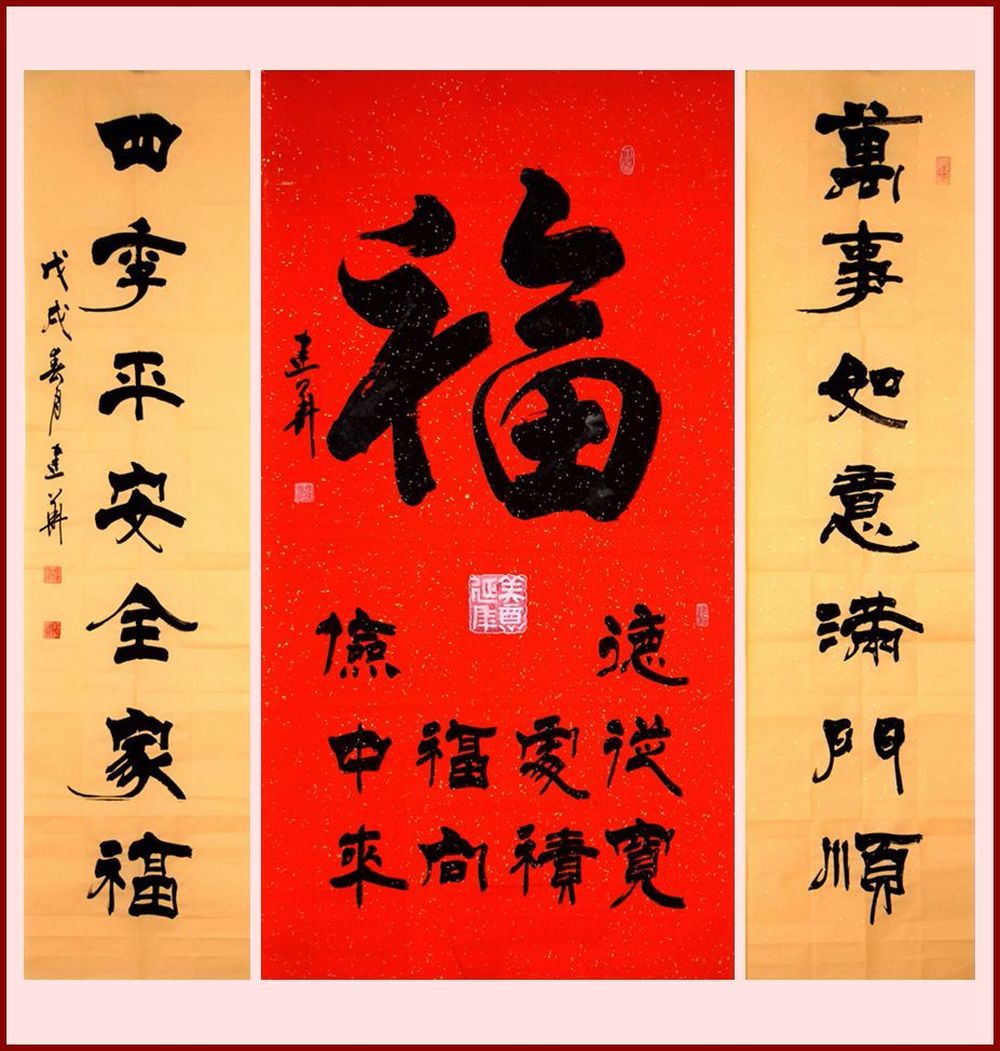 萬事如意滿門順
福
建華
德從寬
處積
福向
儉中來
四季平安全家福
戊戌春月建華